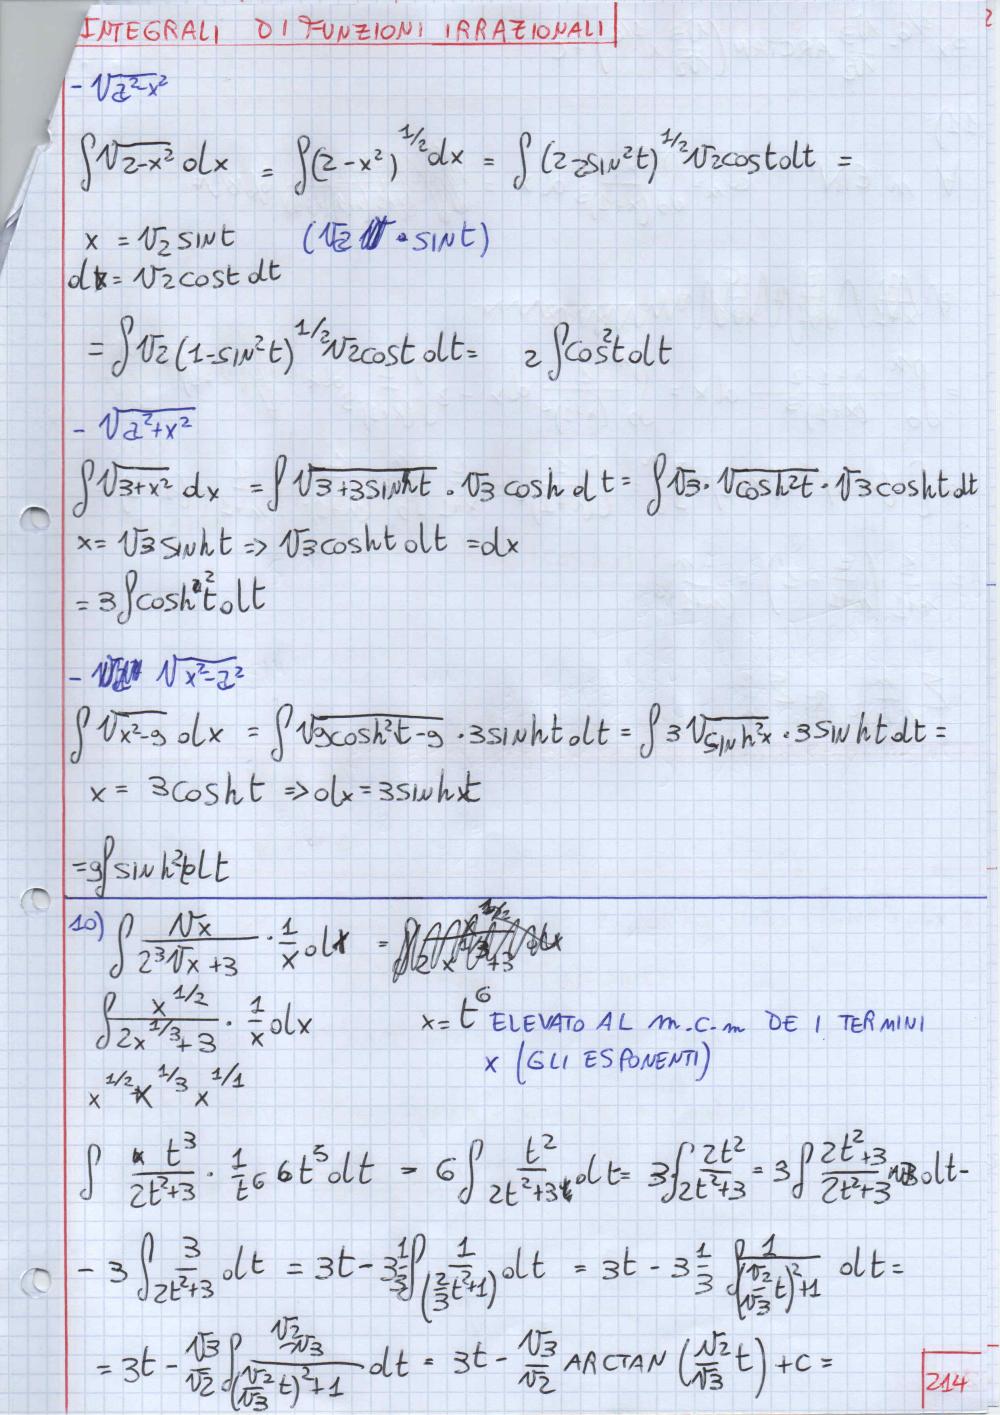 INTEGRALI DI FUNZIONI IRRAZIONALI
- √(a²-x²)
∫√(2-x²) dx = ∫(2-x²)^1/2 dx = ∫(2-2sin²t)^1/2 √2 cost dt =
x = √2 sint (√2 · sint)
dx = √2 cost dt
= ∫√2 (1-sin²t)^1/2 √2 cost dt = 2∫cos²t dt
- √(a²+x²)
∫√(3+x²) dx = ∫√(3+3sinh²t) · √3 cosh dt = ∫√3 · √(cosh²t) · √3 cosht dt
x = √3 sinht => √3 cosht dt = dx
= 3∫cosh²t dt
- √(x²-a²)
∫√(x²-9) dx = ∫√(9cosh²t-9) · 3sinht dt = ∫3√(sinh²x) · 3sinht dt =
x = 3cosht => dx = 3sinht
= 9∫sinh²t dt
10) ∫ √x/(2 ³√x + 3) · 1/x dx =
∫ x^1/2/(2x^1/3 + 3) · 1/x dx x = t⁶ ELEVATO AL m.c.m DE I TERMINI
x (GLI ESPONENTI)
x^1/2 x^1/3 x^1/1
∫ t³/(2t²+3) · 1/t⁶ 6t⁵ dt = 6∫ t²/(2t²+3) dt = 3∫ 2t²/(2t²+3) = 3∫ (2t²+3)/(2t²+3) dt -
- 3∫ 3/(2t²+3) dt = 3t - 3 1/3 ∫ 1/(2/3 t²+1) dt = 3t - 3 1/3 ∫ 1/((√2/√3 t)²+1) dt =
= 3t - √3/√2 ∫ (√2/√3)/((√2/√3 t)²+1) dt = 3t - √3/√2 ARCTAN (√2/√3 t) + c =
214